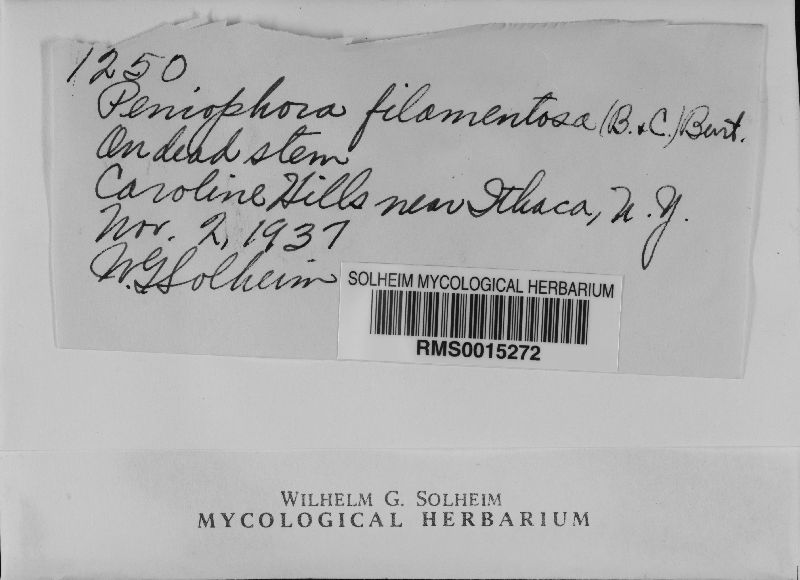 1250
Peniophora filamentosa (B. & C.) Burt.
On dead stem
Caroline Hills near Ithaca, N. Y.
Nov. 2, 1937
W.G. Solheim
SOLHEIM MYCOLOGICAL HERBARIUM
RMS0015272
WILHELM G. SOLHEIM
MYCOLOGICAL HERBARIUM